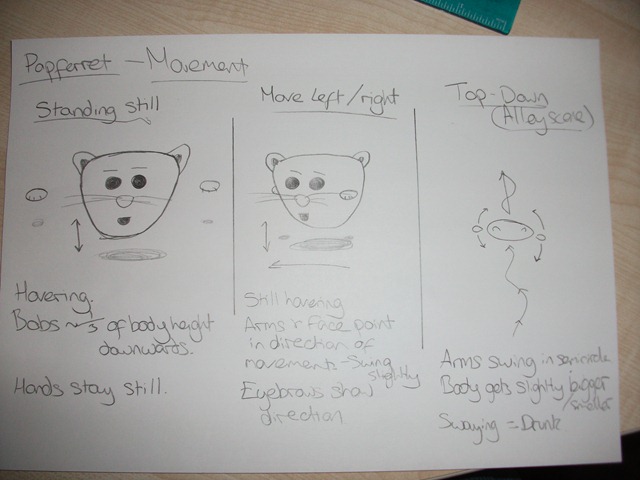 Popferret - Movement
Standing still
Hovering.
Bobs ~1/3 of body height
downwards.
Hands stay still.
Move left/right
Still hovering
Arms 'n' Face point
in direction of
movements - Swing
slightly
Eyebrows show
direction.
Top-Down
(Alley scene)
Arms swing in semicircle
Body gets slightly bigger
/smaller
Swaying = Drunk